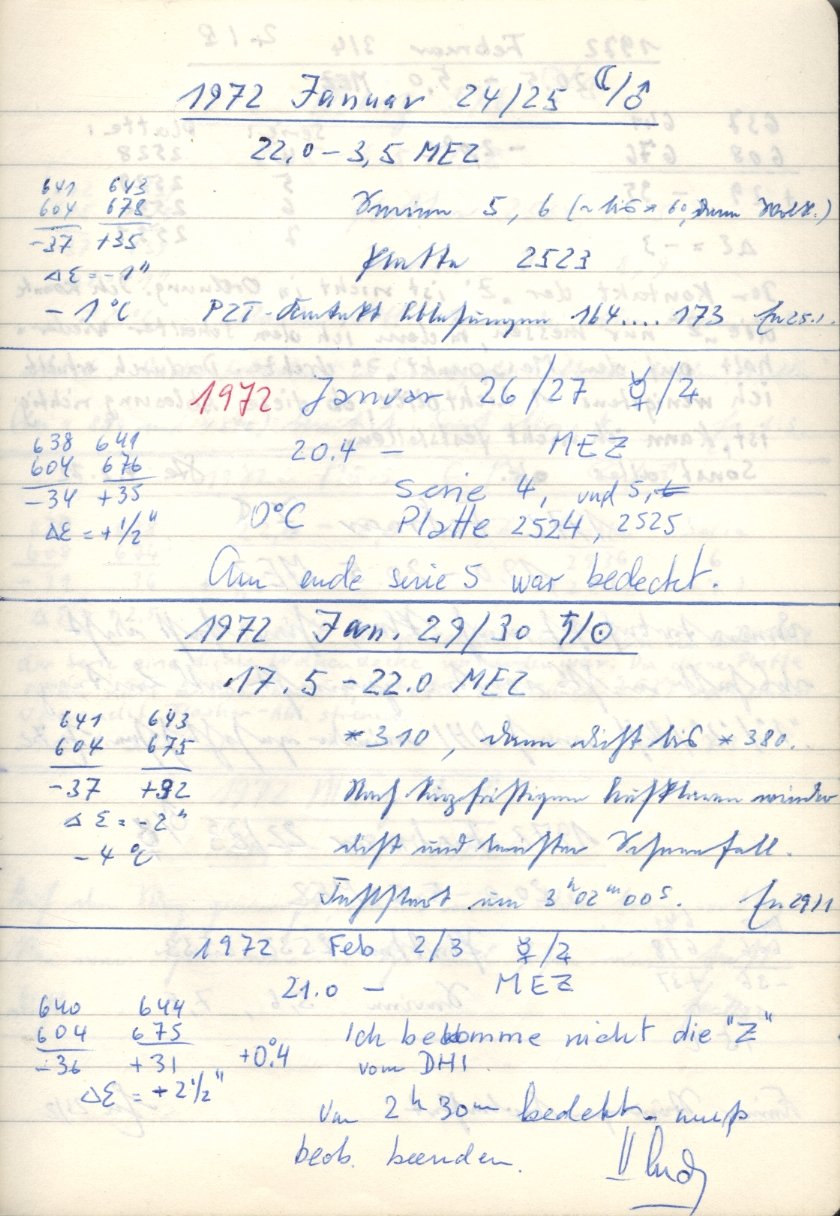 1972 Januar 24/25 ☾/♂
22,0 – 3,5 MEZ
641 643
604 678
-37 +35
ΔΣ = -1"
-1°C
Serien 5, 6 (~bis * 60, dann Wolk.)
Platte 2523
PZT-Kontakt Ablesungen 164.... 173 25.1.
1972 Januar 26/27 ☿/♃
20.4 – MEZ
638 641
604 676
-34 +35
ΔΣ = +1/2"
0°C
Serie 4, und 5,
Platte 2524, 2525
Am ende serie 5 war bedeckt.
1972 Jan. 29/30 ♄/☉
17.5 – 22.0 MEZ
641 643
604 675
-37 +32
ΔΣ = -2"
-4°C
*310, dann dicht bis *380.
Nach kurzfristigem Aufklaren wieder
dicht und leichter Schneefall.
um 3ʰ02ᵐ00ˢ. 29/1
1972 Feb 2/3 ☿/♃
21.0 – MEZ
640 644
604 675
-36 +31
ΔΣ = +2 1/2"
+0°.4
Ich bekomme nicht die "Z"
vom DHI
Von 2ʰ 30ᵐ bedekt. muß
beob. beenden.